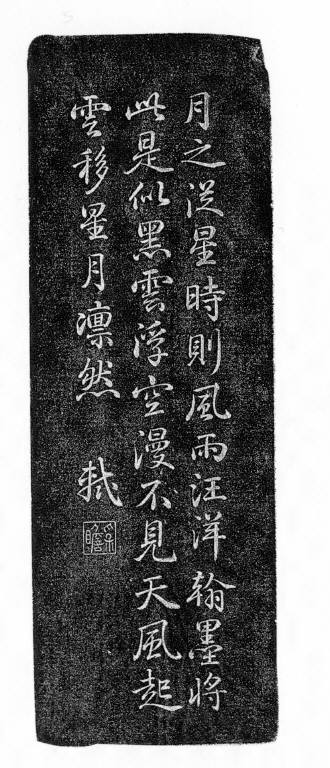 月之從星時則風雨汪洋翰墨將
此是似黑雲浮空漫不見天風起
雲移星月凛然
軾
子瞻